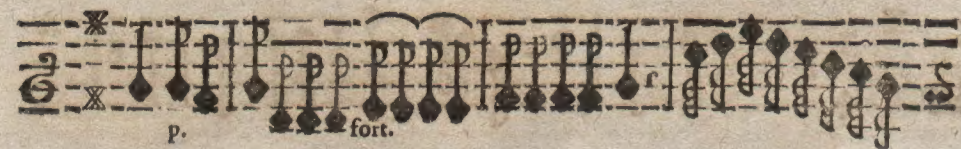 p. fort.